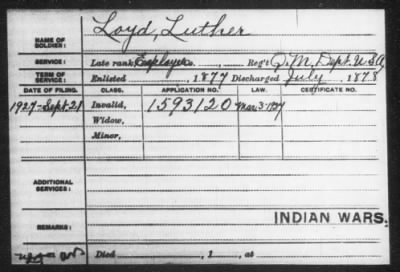 NAME OF SOLDIER: Loyd, Luther
SERVICE: Late rank, Employee Co. , Reg't Q.M. Dept. U.S.A.
TERM OF SERVICE: Enlisted , 1877 Discharged July , 1878
DATE OF FILING. CLASS. APPLICATION NO. LAW. CERTIFICATE NO.
1927-Sept. 21 Invalid, 1593120 Mar. 3-1927
Widow,
Minor,
ADDITIONAL SERVICES:
INDIAN WARS.
REMARKS:
Died , 1 , at